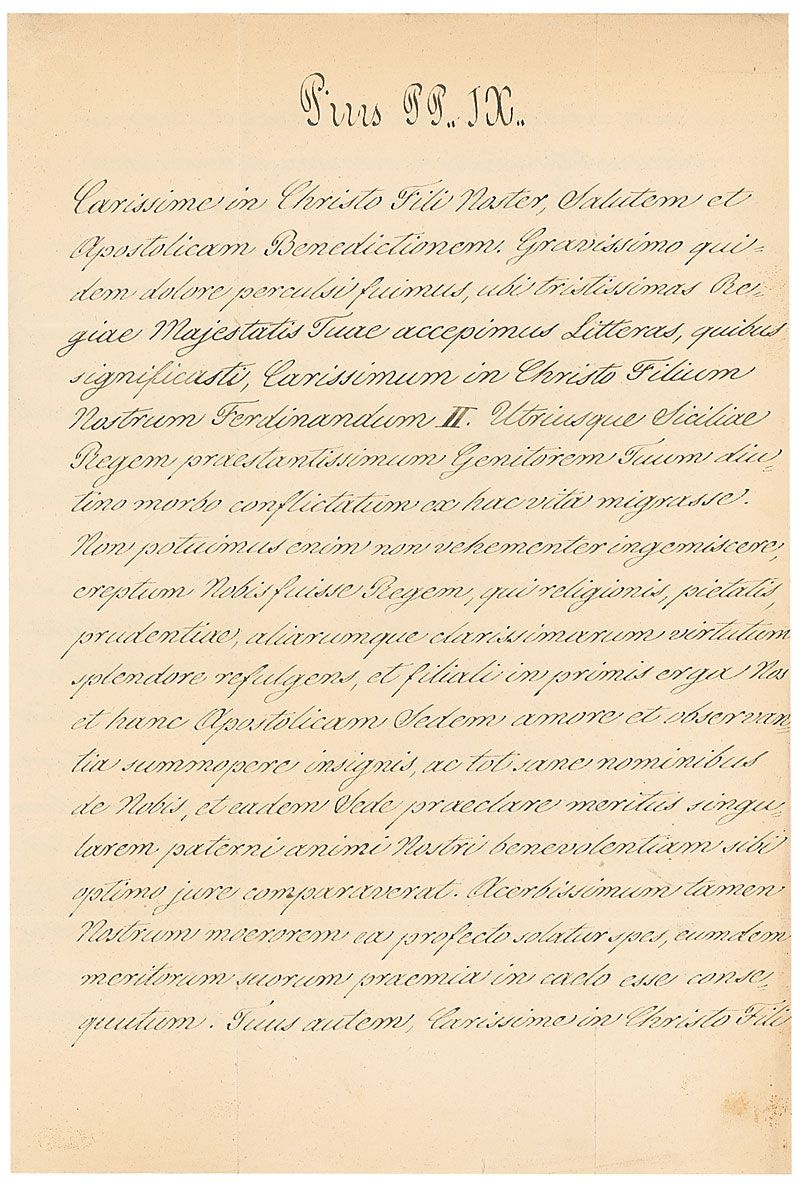 Pius PP. IX.
Carissime in Christo Fili Noster, Salutem et
Apostolicam Benedictionem. Gravissimo qui-
dem dolore perculsi fuimus, ubi tristissimas Re-
giae Majestatis Tuae accepimus Litteras, quibus
significasti, Carissimum in Christo Filium
Nostrum Ferdinandum II. Utriusque Siciliae
Regem praestantissimum Genitorem Tuum diu-
tino morbo conflictatum ex hac vita migrasse.
Non potuimus enim non vehementer ingemiscere,
ereptum Nobis fuisse Regem, qui religionis, pietatis,
prudentiae, aliarumque clarissimarum virtutum
splendore refulgens, et filiali in primis erga Nos
et hanc Apostolicam Sedem amore et observan-
tia summopere insignis, ac tot sane nominibus
de Nobis, et eadem Sede praeclare meritus singu-
larem paterni animi Nostri benevolentiam sibi
optimo jure comparaverat. Acerbissimum tamen
Nostrum moerorem ea profecto solatur spes, eumdem
meritorum suorum praemia in caelo esse conse-
quutum. Tuus autem, Carissime in Christo Fili